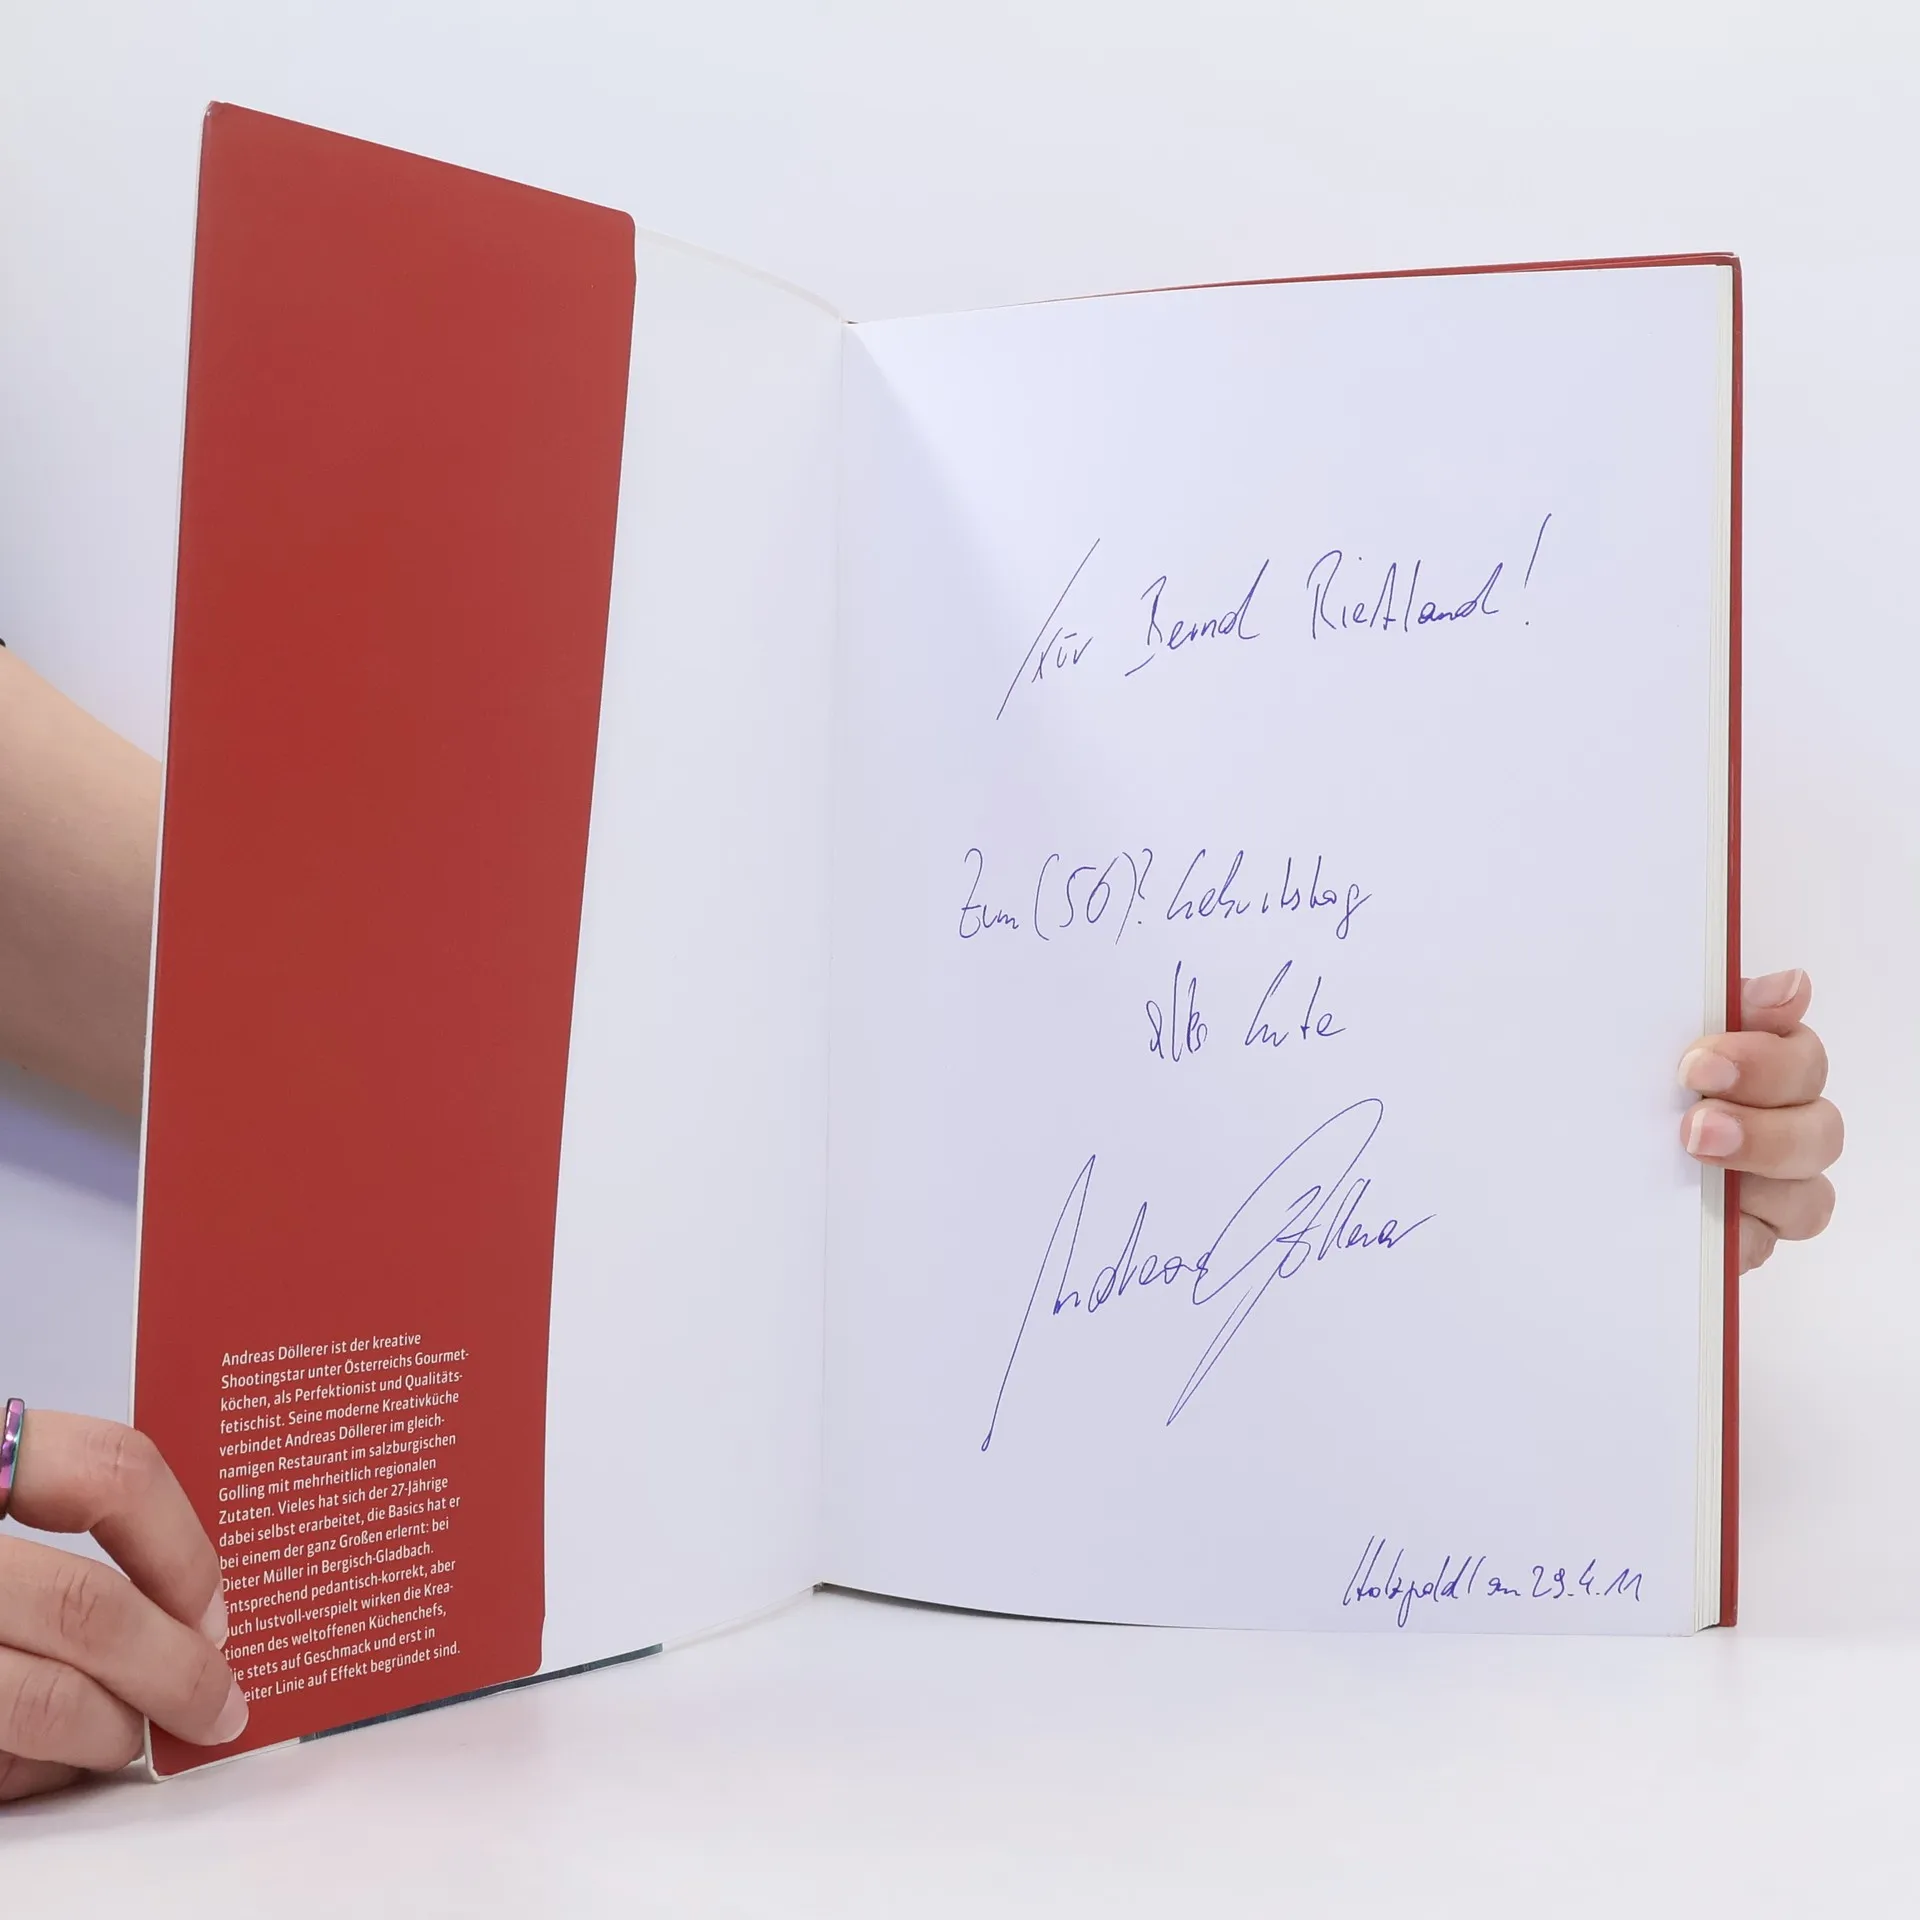 Andreas Döllerer ist der kreative
Shootingstar unter Österreichs Gourmet-
köchen, als Perfektionist und Qualitäts-
fetischist. Seine moderne Kreativküche
verbindet Andreas Döllerer im gleich-
namigen Restaurant im salzburgischen
Golling mit mehrheitlich regionalen
Zutaten. Vieles hat sich der 27-Jährige
dabei selbst erarbeitet, die Basics hat er
bei einem der ganz Großen erlernt: bei
Dieter Müller in Bergisch-Gladbach.
Entsprechend pedantisch-korrekt, aber
auch lustvoll-verspielt wirken die Krea-
tionen des weltoffenen Küchenchefs,
die stets auf Geschmack und erst in
Linie auf Effekt begründet sind.
Für Bernd !
Zum (50)? Geburtstag
alles Gute
Andreas Döllerer
am 29.4.11